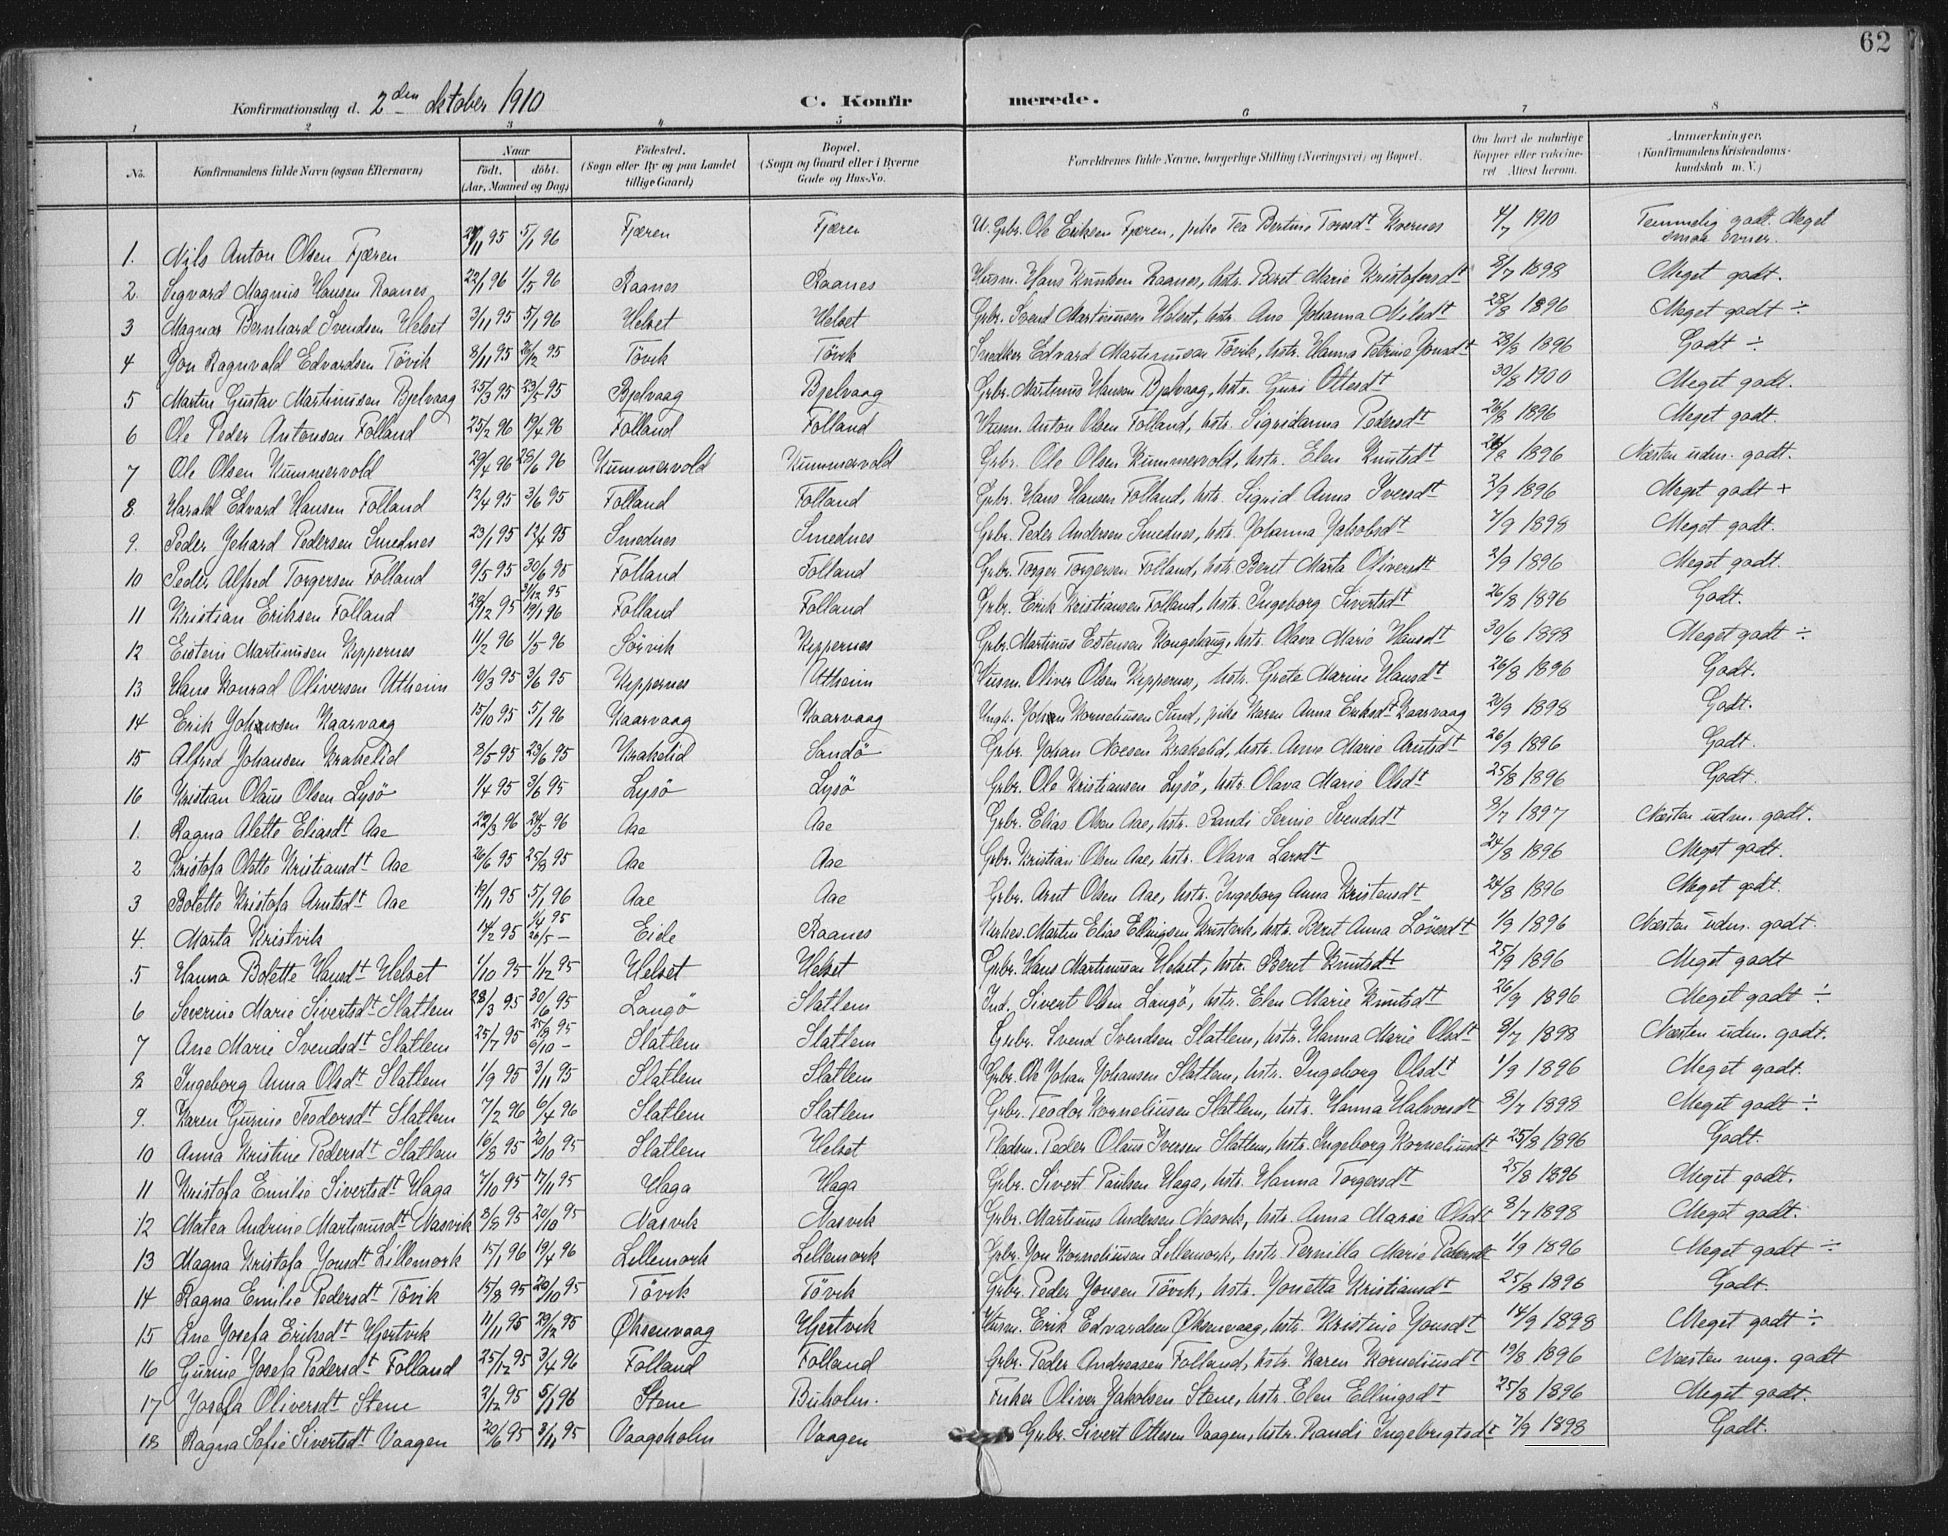 62
Konfirmationsdag d. 2den oktober 1910 C. Konfir merede.
1 2 3 4 5 6 7 8
No. Konfirmandens fulde Navn (ogsaa Efternavn) Naar födt. döbt. (Aar, Maaned og Dag) Födested. (Sogn eller By og paa Landet tillige Gaard) Bopæl. (Sogn og Gaard eller i Byerne Gade og Hus-No. Forældrenes fulde Navne, borgerlige Stilling (Næringsvei) og Bopæl. Om havt de naturlige Kopper eller vaccineret Attest herom. Anmærkninger. (Konfirmandens Kristendomskundskab m. V.)
1. Nils Anton Olsen Fjæren 5/1 96 Fjæren Fjæren U. Grbr. Ole Eriksen Fjæren, pike Tea Bertine Kvernes 4/7 1910 Temmelig godt. Meget smaa evner.
2. Sigvard Magnus Hansen Raanes 22/1 96 1/5 96 Raanes Raanes Husm. Hans Knutsen Raanes, hstr. Beret Marie Kristofersdt 8/7 1898 Meget godt.
3 Magnar Bernhard Svendsen Helset 3/11 95 5/1 96 Helset Helset Grbr. Svend Martinusen Helset, hstr. Ane Johanna Nilsdt 28/8 1896 Meget godt ÷
4 Jon Ragnvald Edvardsen Tövik 8/11 95 26/12 95 Tövik Tövik Snedker Edvard Martinusen Tövik, hstr. Hanna Petrine Jonsdt 28/8 1896 Godt ÷
5 Martin Gustav Martinusen Bjelvaag 25/3 95 23/5 95 Bjelvaag Bjelvaag Grbr. Martinus Hansen Bjelvaag, hstr. Guri Ottesdt 30/8 1900 Meget godt.
6 Ole Peder Antonsen Folland 25/2 96 19/4 96 Folland Folland Husm. Anton Olsen Folland, hstr. Sigridanna Pedersdt 26/8 1896 Meget godt.
7 Ole Olsen Kummervold 29/4 96 28/6 96 Kummervold Kummervold Grbr. Ole Olsen Kummervold, hstr. Elen Knutsdt 1896 Næsten udm. godt.
8. Harald Edvard Hansen Folland 12/4 95 3/6 95 Folland Folland Grbr. Hans Hansen Folland, hstr. Sigrid Anna Iversdt 2/9 1896 Meget godt +
9. Peder Gehard Pedersen Smednes 23/1 95 12/4 95 Smednes Smednes Grbr. Peder Andersen Smednes, hstr. Johanna Jakobsdt 7/9 1898 Meget godt.
10 Peder Alfred Torgersen Folland 9/5 95 30/6 95 Folland Folland Grbr. Torger Torgersen Folland, hstr. Beret Marta Oliversdt 2/9 1896 Meget godt.
11 Kristian Eriksen Folland 28/12 95 31/12 95 19/1 96 Folland Folland Grbr. Erik Kristiansen Folland, hstr. Ingeborg Sivertsdt 26/8 1896 Godt.
12 Eistein Martinusen Keppernes 11/2 96 1/5 96 Sörvik Keppernes Grbr. Martinus Estensen Kongshaug, hstr. Olava Marie Hansdt 30/6 1898 Meget godt ÷
13 Hans Konrad Oliversen Utheim 10/3 95 3/6 95 Keppernes Utheim Husm. Oliver Olsen Keppernes, hstr. Grete Marine Hansdt 26/8 1896 Godt.
14 Erik Johansen Kaarvaag 15/10 95 5/1 96 Kaarvaag Kaarvaag Ungk. Johan Korneliusen Sund, pike Karen Anna Eriksdt Kaarvaag 20/9 1898 Godt.
15 Alfred Johansen Krakelid 8/5 95 23/6 95 Krakelid Sandö Grbr. Johan Krakelid, hstr. Anne Marie Arntsdt 26/9 1896 Godt.
16 Kristian Olaus Olsen Lysö 1/4 95 3/6 95 Lysö Lysö Grbr. Ole Kristiansen Lysö, hstr. Olava Marie Olsdt 25/8 1896 Godt.
1. Ragna Alette Eliasdt Aae 22/3 96 24/5 96 Aae Aae Grbr. Elias Olsen Aae, hstr. Randi Serine Svendsdt 8/7 1897 Næsten udm. godt.
2 Kristofa Olette Kristiansdt Aae 26/6 95 25/8 95 Aae Aae Grbr. Kristian Olsen Aae, hstr. Olava Larsdt 24/8 1896 Meget godt.
3 Bolette Kristofa Arntsdt Aae 19/11 95 5/1 96 Aae Aae Grbr. Arnt Olsen Aae, hstr. Ingeborg Anna Kristensdt 24/8 1896 Meget godt.
4. Marta Kristvik 14/2 95 26/5 – Eide Raanes Martin Elias Ellingsen Kristvik, hstr. Beret Anna 1/9 1896 Næsten udm. godt.
5 Hanna Bolette Hansdt Helset 1/10 95 1/12 95 Helset Helset Grbr. Hans Martinusen Helset, hstr. Beret Knutsdt 25/9 1896 Meget godt
6 Severine Marie Sivertsdt Slatlem 28/3 95 30/6 95 Langö Slatlem Ind. Sivert Olsen Langö, hstr. Elen Marie Knutsdt 26/9 1896 Meget godt ÷
7 Ane Marie Svendsdt Slatlem 25/7 95 25/8 95 6/10 – Slatlem Slatlem Grbr. Svend Svendsen Slatlem, hstr. Hanna Marie Olsdt 8/7 1898 Næsten udm. godt.
8 Ingeborg Anna Olsdt Slatlem 1/9 95 3/11 95 Slatlem Slatlem Grbr. Ole Johan Johansen Slatlem, hstr. Ingeborg Olsdt 1/9 1896 Meget godt.
9. Karen Gurine Teodorsdt Slatlem 7/2 96 6/4 96 Slatlem Slatlem Grbr. Teodor Korneliusen Slatlem, hstr. Hanna Halvorsdt 8/7 1898 Meget godt ÷
10 Anna Kristine Pedersdt Slatlem 16/8 95 20/10 95 Slatlem Helset Pladsm. Peder Olaus Iversen Slatlem, hstr. Ingeborg Korneliusdt 25/8 1896 Godt.
11 Kristofa Emilie Sivertsdt Haga 7/10 95 17/11 95 Haga Haga Grbr. Sivert Paulsen Haga, hstr. Hanna Torgersdt 25/8 1896 Meget godt.
12 Matea Andrine Martinusdt Nasvik 8/8 95 20/10 95 Nasvik Nasvik Grbr. Martinus Andersen Nasvik, hstr. Anna Marie Olsdt 8/7 1898 Meget godt.
13 Magna Kristofa Jonsdt Lillemork 15/1 96 19/4 96 Lillemork Lillemork Grbr. Jon Korneliusen Lillemork, hstr. Pernilla Marie Pedersdt 1/9 1896 Meget godt ÷
14 Ragna Emilie Pedersdt Tövik 15/8 95 20/10 95 Tövik Tövik Grbr. Peder Jonsen Tövik, hstr. Josetta Kristiansdt 25/8 1896 Godt.
15 Ane Josefa Eriksdt Hjertvik 11/11 95 29/12 95 Øksenvaag Hjertvik Husm. Erik Edvardsen Øksenvaag, hstr. Kristine Jonsdt 14/9 1898 Meget godt ÷
16 Gurine Josefa Pedersdt Folland 25/12 95 3/4 96 Folland Folland Grbr. Peder Andreasen Folland, hstr. Karen Korneliusdt 19/8 1896 Næsten meg. godt
17 Josefa Oliversdt Stene 2/12 95 5/1 96 Stene Buholm. Fisker Oliver Jakobsen Stene, hstr. Elen Ellingsdt 25/8 1896 Meget godt.
18 Ragna Sofie Sivertsdt Vaagen 20/6 95 3/11 95 Vaagsholm Vaagen Grbr. Sivert Ottesen Vaagen, hstr. Randi Ingebrigtsdt 7/9 1898 Godt.